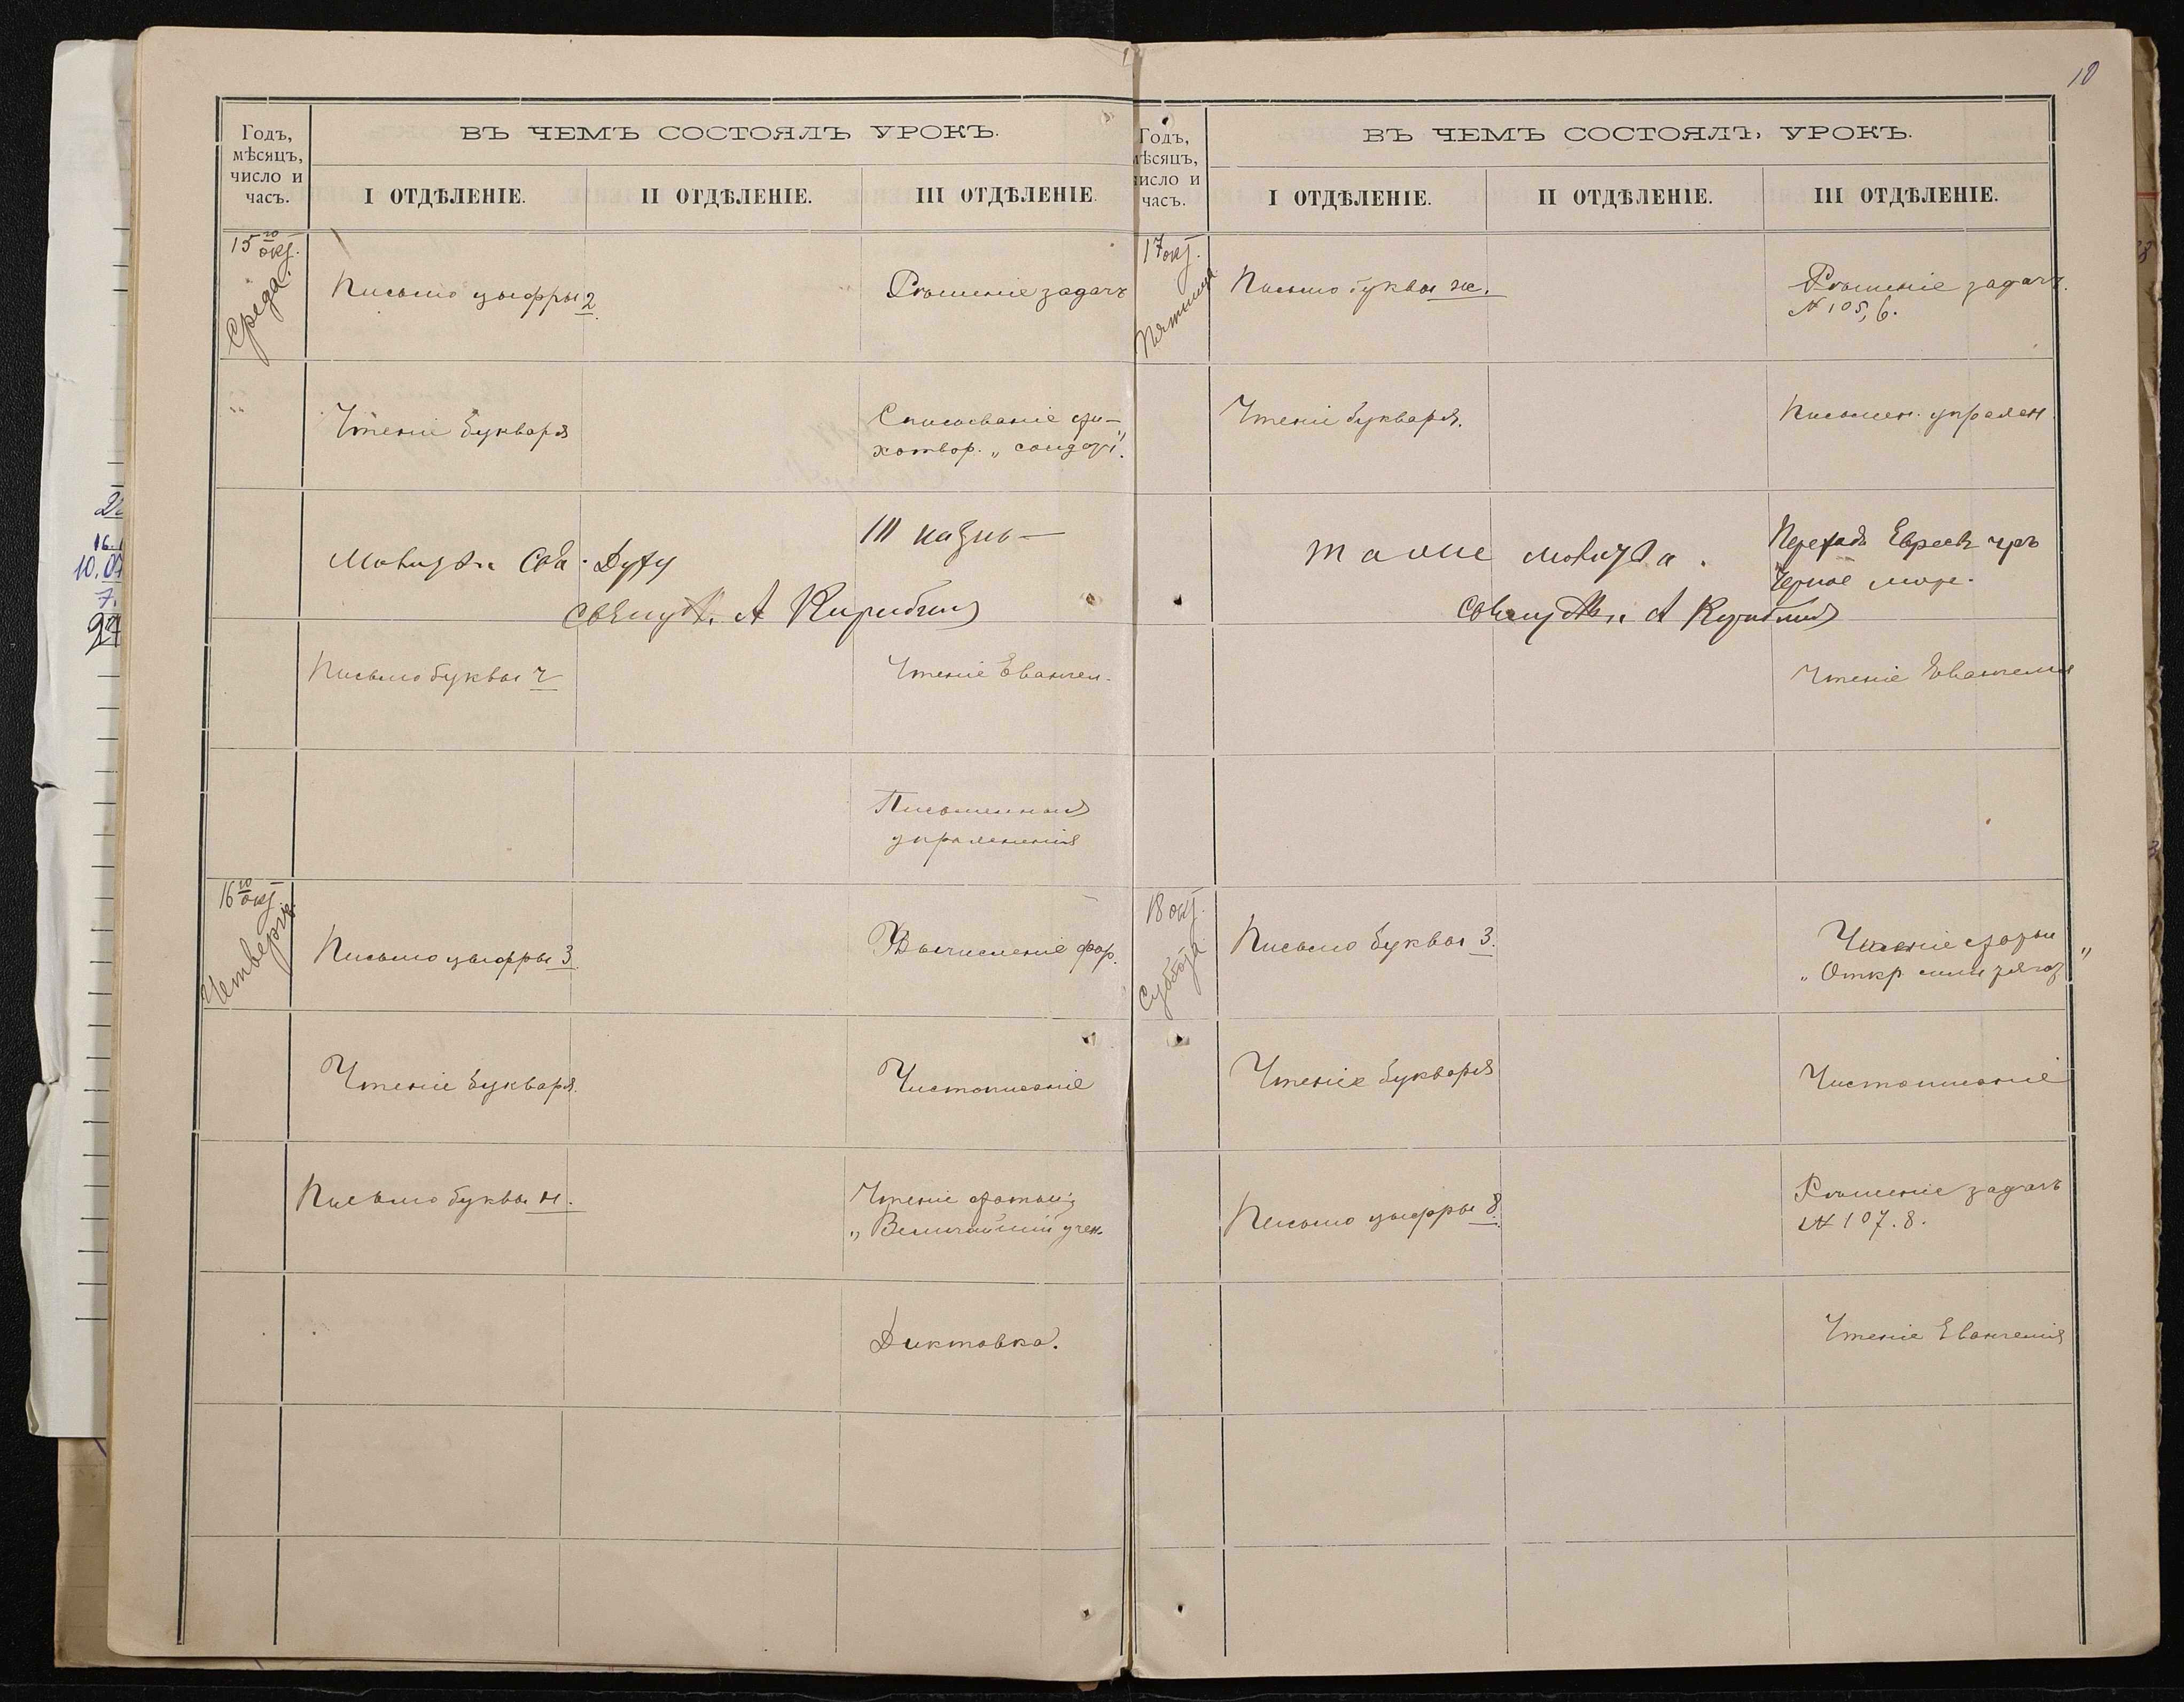 10
Годъ,
мѣсяцъ,
число и
часъ.
ВЪ ЧЕМЪ СОСТОЯЛЪ УРОКЪ.
I ОТДѢЛЕНІЕ.
II ОТДѢЛЕНІЕ.
III ОТДѢЛЕНІЕ.
15го окт.
Среда.
Письмо цыфры 2.
Рѣшеніе задачъ
Чтеніе букваря
Списываніе сти-
хотвор.
Молитва Св. Духу
III казнь —
Священ. А
Письмо буквы ч
Чтеніе Евангел.
Письменныя
упражненія
16го окт.
Четвергъ.
Письмо цыфры 3.
Вычисленіе фор.
Чтеніе букваря.
Чистописаніе
Письмо буквы н.
Чтеніе статьи;
„Величайшій учен.
Диктовка.
Годъ,
мѣсяцъ,
число и
часъ.
ВЪ ЧЕМЪ СОСТОЯЛЪ УРОКЪ.
I ОТДѢЛЕНІЕ.
II ОТДѢЛЕНІЕ.
III ОТДѢЛЕНІЕ.
17 окт.
Пятница
Письмо буквы ж.
Рѣшеніе задачъ.
№ 105, 6.
Чтеніе букваря.
Письмен. упражн.
Таже молитва.
Переходъ Евреевъ чрезъ
Черное море.
Священ. А
Чтеніе Евангелія
18 окт.
Суббота
Письмо буквы З.
Чтеніе статьи
„Откр.
Чтеніе букваря
Чистописаніе
Письмо цыфры 8.
Рѣшеніе задачъ
№ 107. 8.
Чтеніе Евангелія